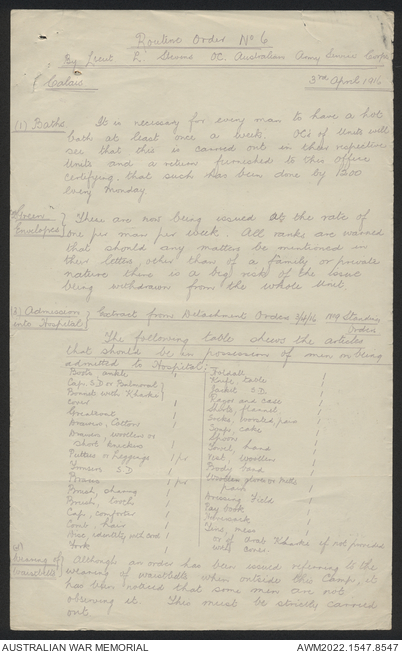 Routine Order No 6
By Lieut. L. OC. Australian Army Service Corps
Calais. 3rd April 1916
(1) Baths. It is necessary for every man to have a hot
bath at least once a week. OCs of Units will
see that this is carried out in their respective
Units and a return furnished to this office
certifying that such has been done by 1200
every Monday
"Green" Envelopes } These are now being issued at the rate of
one per man per week. All ranks are warned
that should any matters be mentioned in
their letters other than of a family or private
nature there is a big risk of the issue
being withdrawn from the whole Unit.
(3) Admission into Hospital } Extract from Detachment Orders Standing Orders
The following table shews the articles
that should be in possession of men on being
admitted to Hospital:
Boots ankle
Cap, S.D or Balmoral }
Bonnet with Khaki }
cover
Greatcoat 1
Drawers, Cotton 1
Drawers, woollen or
short knickers
Puttees or Leggings 1 pr
Trousers S.D 1
Braces 1 pr
Brush, shaving 1
Brush, tooth 1
Cap, comforter 1
Comb, hair 1
Disc, identity, with cord 1
Fork 1
Holdall 1
Knife, table 1
Jacket S.D 1
Razor and case 1
Shirts, flannel 1
Socks, worsted, pairs 1
Soap, cake 1
Spoon 1
Towel, hand 1
Vest, woollen 1
Body band 1
Woollen gloves or mitts
pairs 1
Dressing Field 1
Pay book 1
Haversack 1
Tins, mess 1
or if not provided
with cover.
(4) Wearing of Waistbelts } Although an order has been issued referring to the
wearing of waistbelts when outside the Camp, it
has been noticed that some men are not
observing it. This must be strictly carried
out
AUSTRALIAN WAR MEMORIAL AWM2022.1547.8547